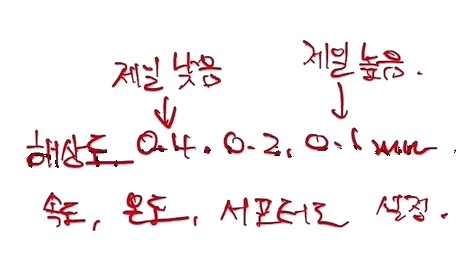 제일 낮음 제일 높음.
해상도 0.4. 0.2, 0.1mm
속도, 온도, 서포터도 설정.